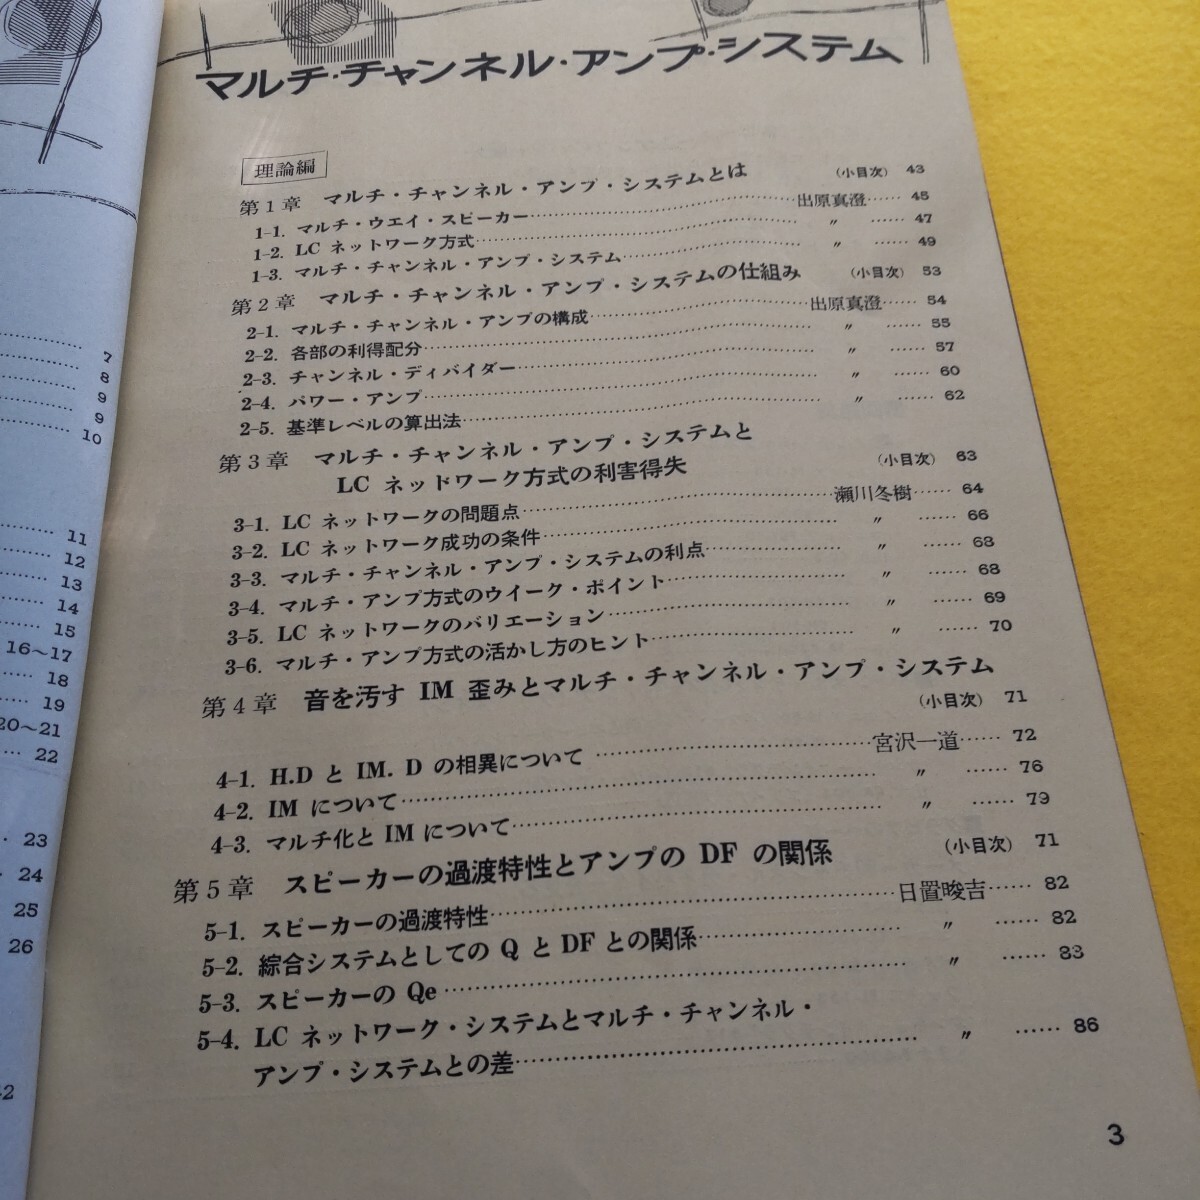 7
8
9
9
10
11
12
13
14
15
16～17
18
19
20～21
22
23
24
25
26
マルチ・チャンネル・アンプ・システム
理論編
第1章 マルチ・チャンネル・アンプ・システムとは (小目次) 43
1-1. マルチ・ウエイ・スピーカー 出原真澄 45
1-2. LC ネットワーク方式 〃 47
1-3. マルチ・チャンネル・アンプ・システム 〃 49
第2章 マルチ・チャンネル・アンプ・システムの仕組み (小目次) 53
2-1. マルチ・チャンネル・アンプの構成 出原真澄 54
2-2. 各部の利得配分 〃 55
2-3. チャンネル・ディバイダー 〃 57
2-4. パワー・アンプ 〃 60
2-5. 基準レベルの算出法 〃 62
第3章 マルチ・チャンネル・アンプ・システムと
LC ネッドワーク方式の利害得失 (小目次) 63
3-1. LC ネットワークの問題点 瀬川冬樹 64
3-2. LC ネットワーク成功の条件 〃 66
3-3. マルチ・チャンネル・アンプ・システムの利点 〃 68
3-4. マルチ・アンプ方式のウイーク・ポイント 〃 68
3-5. LC ネットワークのバリエーション 〃 69
3-6. マルチ・アンプ方式の活かし方のヒント 〃 70
第4章 音を汚す IM 歪みとマルチ・チャンネル・アンプ・システム
(小目次) 71
4-1. H.D と IM. D の相異について 宮沢一道 72
4-2. IM について 〃 76
4-3. マルチ化と IM について 〃 79
第5章 スピーカーの過渡特性とアンプの DF の関係 (小目次) 71
5-1. スピーカーの過渡特性 日置晙吉 82
5-2. 綜合システムとしての Q と DF との関係 〃 82
5-3. スピーカーの Qe 〃 83
5-4. LC ネットワーク・システムとマルチ・チャンネル・
アンプ・システムとの差 〃 86
3